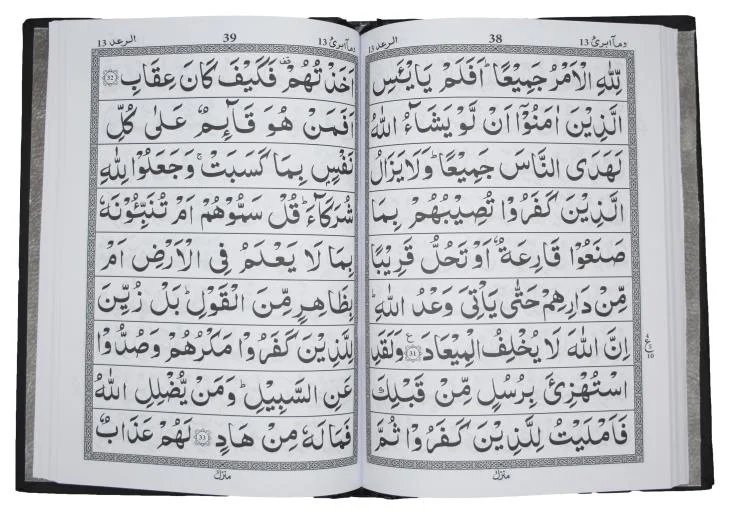 وما ابرئ 13
38
الرعد 13
لِّلّٰهِ الْاَمْرُ جَمِيْعًا ؕ اَفَلَمْ يَايْـَٔسِ
الَّذِيْنَ اٰمَنُوْۤا اَنْ لَّوْ يَشَآءُ اللّٰهُ
لَهَدَى النَّاسَ جَمِيْعًا ؕ وَلَا يَزَالُ
الَّذِيْنَ كَفَرُوْا تُصِيْبُهُمْ بِمَا
صَنَعُوْا قَارِعَةٌ اَوْ تَحُلُّ قَرِيْبًا
مِّنْ دَارِهِمْ حَتّٰى يَاْتِىَ وَعْدُ اللّٰهِ ؕ
اِنَّ اللّٰهَ لَا يُخْلِفُ الْمِيْعَادَ 31 ع وَلَقَدِ
اسْتُهْزِئَ بِرُسُلٍ مِّنْ قَبْلِكَ
فَاَمْلَيْتُ لِلَّذِيْنَ كَفَرُوْا ثُمَّ
4
ع 5
10
منزل
وما ابرئ 13
39
الرعد 13
اَخَذْتُهُمْ قف فَكَيْفَ كَانَ عِقَابِ 32
اَفَمَنْ هُوَ قَآئِمٌ عَلٰى كُلِّ
نَفْسٍۭ بِمَا كَسَبَتْ ۚ وَجَعَلُوْا لِلّٰهِ
شُرَكَآءَ ؕ قُلْ سَمُّوْهُمْ اَمْ تُنَبِّـُٔوْنَهٗ
بِمَا لَا يَعْلَمُ فِى الْاَرْضِ اَمْ
بِظَاهِرٍ مِّنَ الْقَوْلِ ؕ بَلْ زُيِّنَ
لِلَّذِيْنَ كَفَرُوْا مَكْرُهُمْ وَصُدُّوْا
عَنِ السَّبِيْلِ ؕ وَمَنْ يُّضْلِلِ اللّٰهُ
فَمَا لَهٗ مِنْ هَادٍ 33 لَهُمْ عَذَابٌ
منزل